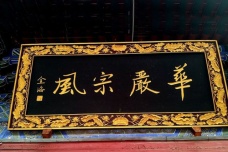 華嚴宗風